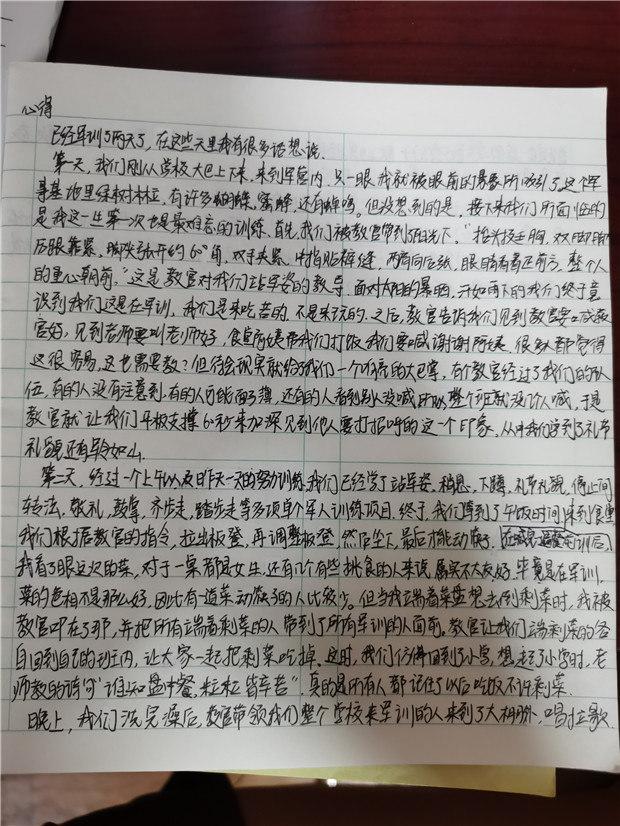 心得
已经军训了两天了，在这些天里我有很多话想说。
第一天，我们刚从学校大巴上下来，来到军营内，只一眼我就被眼前的景象所吸引了，这个军
事基地里绿树林林，有许多蝴蝶、蜜蜂，还有蜂鸣。但没想到的是，接下来我们所面临的
是我这一生第一次也是最难忘的训练。首先，我们被教官带到了阳光下。"抬头挺胸，双脚
后跟靠紧，脚尖张开约60°角，双手夹紧，中指贴裤缝，两肩向后张，眼睛看着正前方，整个人
的重心朝前。"这是教官对我们站军姿的教导，面对太阳的暴晒，汗如雨下的我们终于意
识到我们这是在军训，我们是来吃苦的，不是来玩的。之后，教官告诉我们见到教官要叫教
官好，见到老师要叫老师好，食堂阿姨帮我们打饭我们要喊谢谢阿姨，很多人都觉得
这很容易，这也需要教？但待会现实就给了我们一个响亮的大巴掌，有个教官经过了我们的队
伍，有的人没有注意到，有的人可能面子薄，还有的人看到别人没喊所以整个班就没几人喊，于是
教官就让我们平板支撑60秒来加深见到他人要打招呼的这一个印象，从中我们学到了礼节
礼貌还有军令如山。
第二天，经过一个上午以及昨天一天的努力训练，我们已经学了站军姿、稍息、下蹲、礼节礼貌、停止间
转法、敬礼、鼓掌、齐步走、踏步走等多项单个军人训练项目，终于，我们等到了午饭时间，来到食堂
我们根据教官的指令，拉出板凳，再调整板凳，然后坐下，最后才能动筷了。
我看了眼这次的菜，对于一桌都是女生，还有几个有些挑食的人来说属实不太友好，毕竟是在军训，
菜的色相不是那么好，因此有一道菜动筷子的人比较少。但当我端着菜盘想去倒剩菜时，我被
教官叫在了那，并把所有端着剩菜的人带到了所有军训的人面前。教官让我们端剩菜的各
自回到自己的班内，让大家一起把剩菜吃掉。这时，我们仿佛回到了小学，想起了小学时，老
师教的诗句"谁知盘中餐，粒粒皆辛苦"。真的是所有人都记住了以后吃饭不许剩菜。
晚上，我们洗完澡后，教官带领我们整个学校来军训的人来到了大棚，唱拉歌，